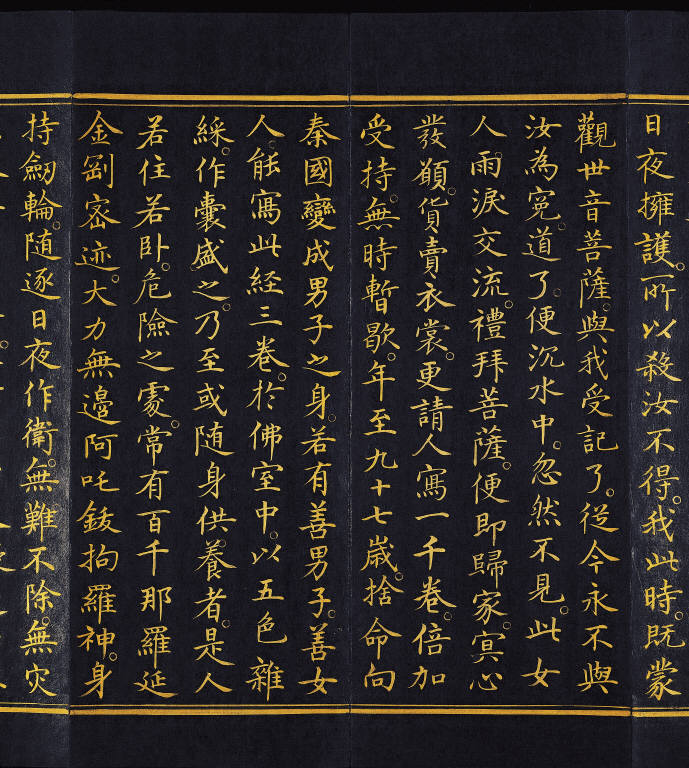 日夜擁護。所以殺汝不得。我此時。既蒙
觀世音菩薩。與我受記了。從今永不與
汝為寃。道了。便沉水中。忽然不見。此女
人。雨淚交流。禮拜菩薩。便即歸家。冥心
發願。貨賣衣裳。更請人寫一千卷。倍加
受持。無時暫歇。年至九十七歲。捨命向
秦國變成男子之身。若有善男子。善女
人。能寫此経三卷。於佛室中。以五色雜
綵。作囊盛之。乃至或随身供養者。是人
若住若卧。危險之處。常有百千那羅延
金剛宻迹。大力無邊阿吒鈸拘羅神。身
持劒輪。随逐日夜作衛。無難不除。無灾